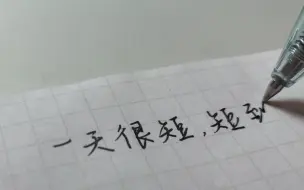 一天很短,短到